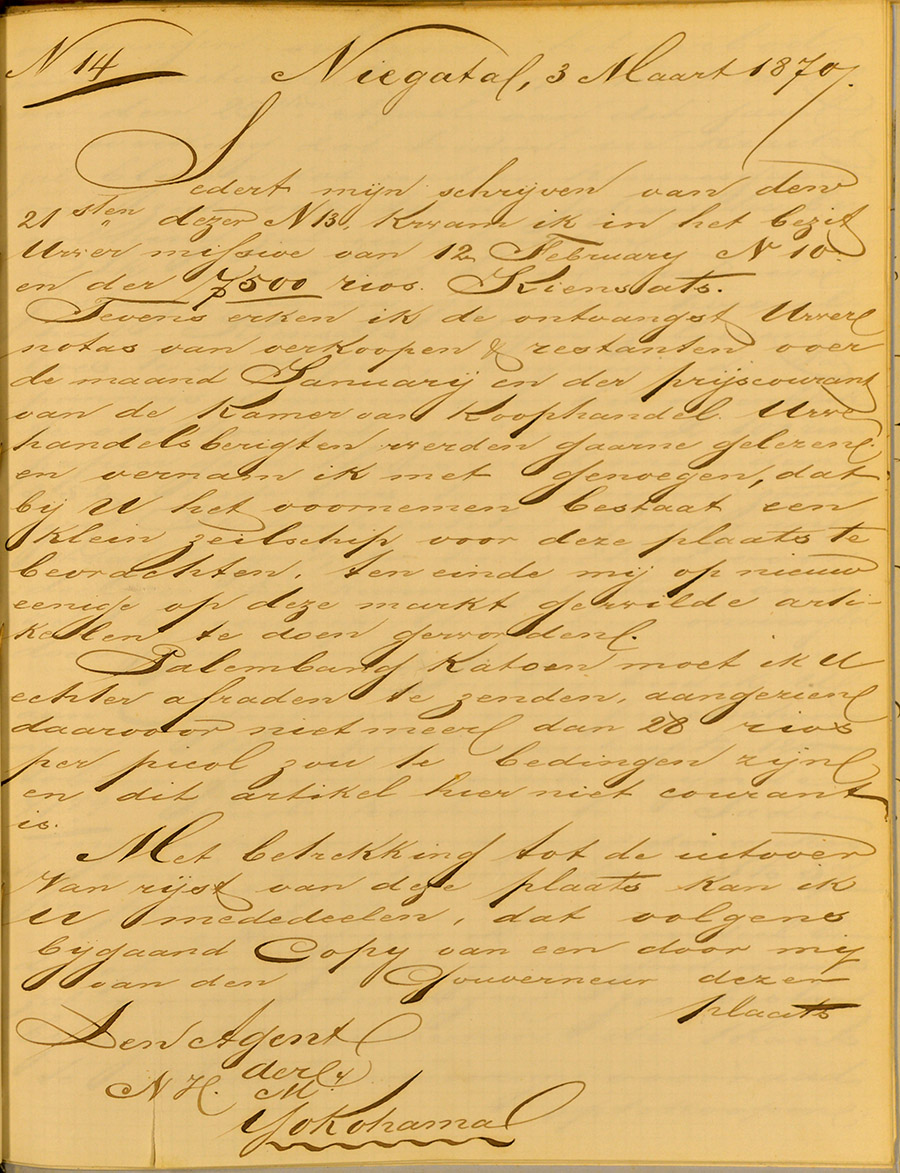 N 14
Niegata, 3 Maart 1870.
Sedert mijn schrijven van den
21sten dezer N 13, kwam ik in het bezit
Uwer missive van 12 February N 10
en der 7500 rios. Kiensats.
Tevens erken ik de ontvangst Uwer
notas van verkoopen & restanten over
de maand January en der prijscourant
van de Kamer van Koophandel. Uwe
handelsberigten werden gaarne gelezen
en vernam ik met genoegen, dat
bij U het voornemen bestaat een
klein zeilschip voor deze plaats te
bevrachten, ten einde mij op nieuw
eenige op deze markt gewilde arti-
kelen te doen geworden.
Palembang Katoen moet ik U
echter afraden te zenden, aangezien
daarvoor niet meer dan 28 rios
per picol zou te bedingen zijn
en dit artikel hier niet courant
is.
Met betrekking tot de uitvoer
van rijst van deze plaats kan ik
U mededeelen, dat volgens
bijgaand Copy van een door mij
van den Gouverneur dezer
plaats
Den Agent
der
N. H. My.
Yokohama